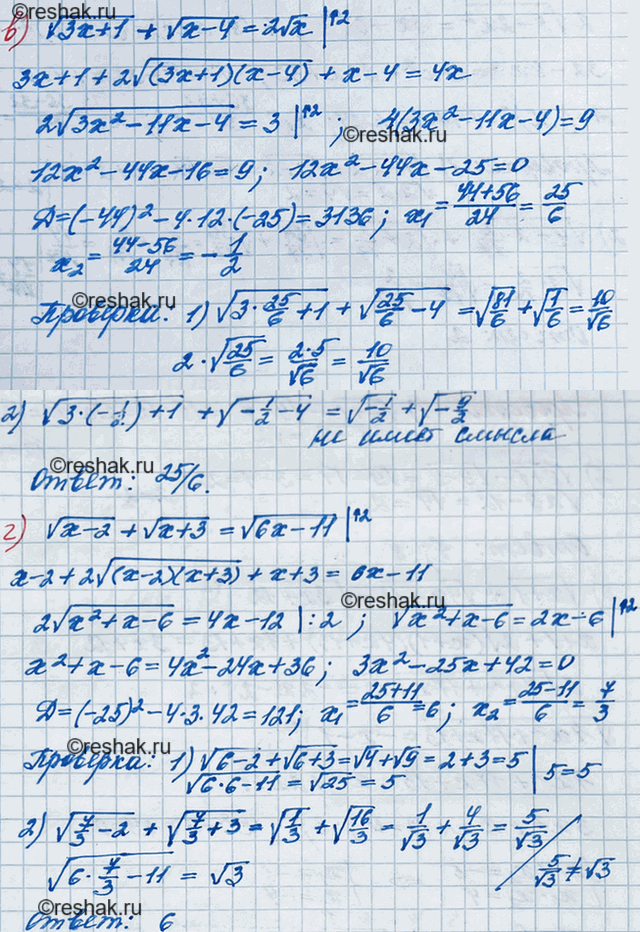 ©reshak.ru
в) √(3x+1) + √(x-4) = 2√x |↑2
3x+1+2√((3x+1)(x-4)) + x-4 = 4x
2√(3x²-11x-4) = 3 |↑2 ; 4(3x²-11x-4)=9
©reshak.ru
12x²-44x-16=9; 12x²-44x-25=0
D=(-44)²-4·12·(-25)=3136; x₁=(44+56)/24=25/6
x₂=(44-56)/24=-1/2
©reshak.ru
Проверка: 1) √(3·25/6+1) + √(25/6-4) = √(81/6)+√(1/6)=10/√6
2·√(25/6)=(2·5)/√6=10/√6
©reshak.ru
2) √(3·(-1/2)+1) + √(-1/2-4) = √(-1/2)+√(-9/2)
не имеет смысла
©reshak.ru
Ответ: 25/6.
г) √(x-2)+√(x+3)=√(6x-11) |↑2
©reshak.ru
x-2+2√((x-2)(x+3))+x+3=6x-11
©reshak.ru
2√(x²+x-6)=4x-12 |:2 ; √(x²+x-6)=2x-6 |↑2
x²+x-6=4x²-24x+36; 3x²-25x+42=0
D=(-25)²-4·3·42=121; x₁=(25+11)/6=6; x₂=(25-11)/6=7/3
©reshak.ru
Проверка: 1) √(6-2)+√(6+3)=√4+√9=2+3=5 | 5=5
√(6·6-11)=√25=5
2) √(7/3-2)+√(7/3+3)=√(1/3)+√(16/3)=1/√3+4/√3=5/√3
√(6·7/3-11)=√3 5/√3≠√3
©reshak.ru
Ответ: 6